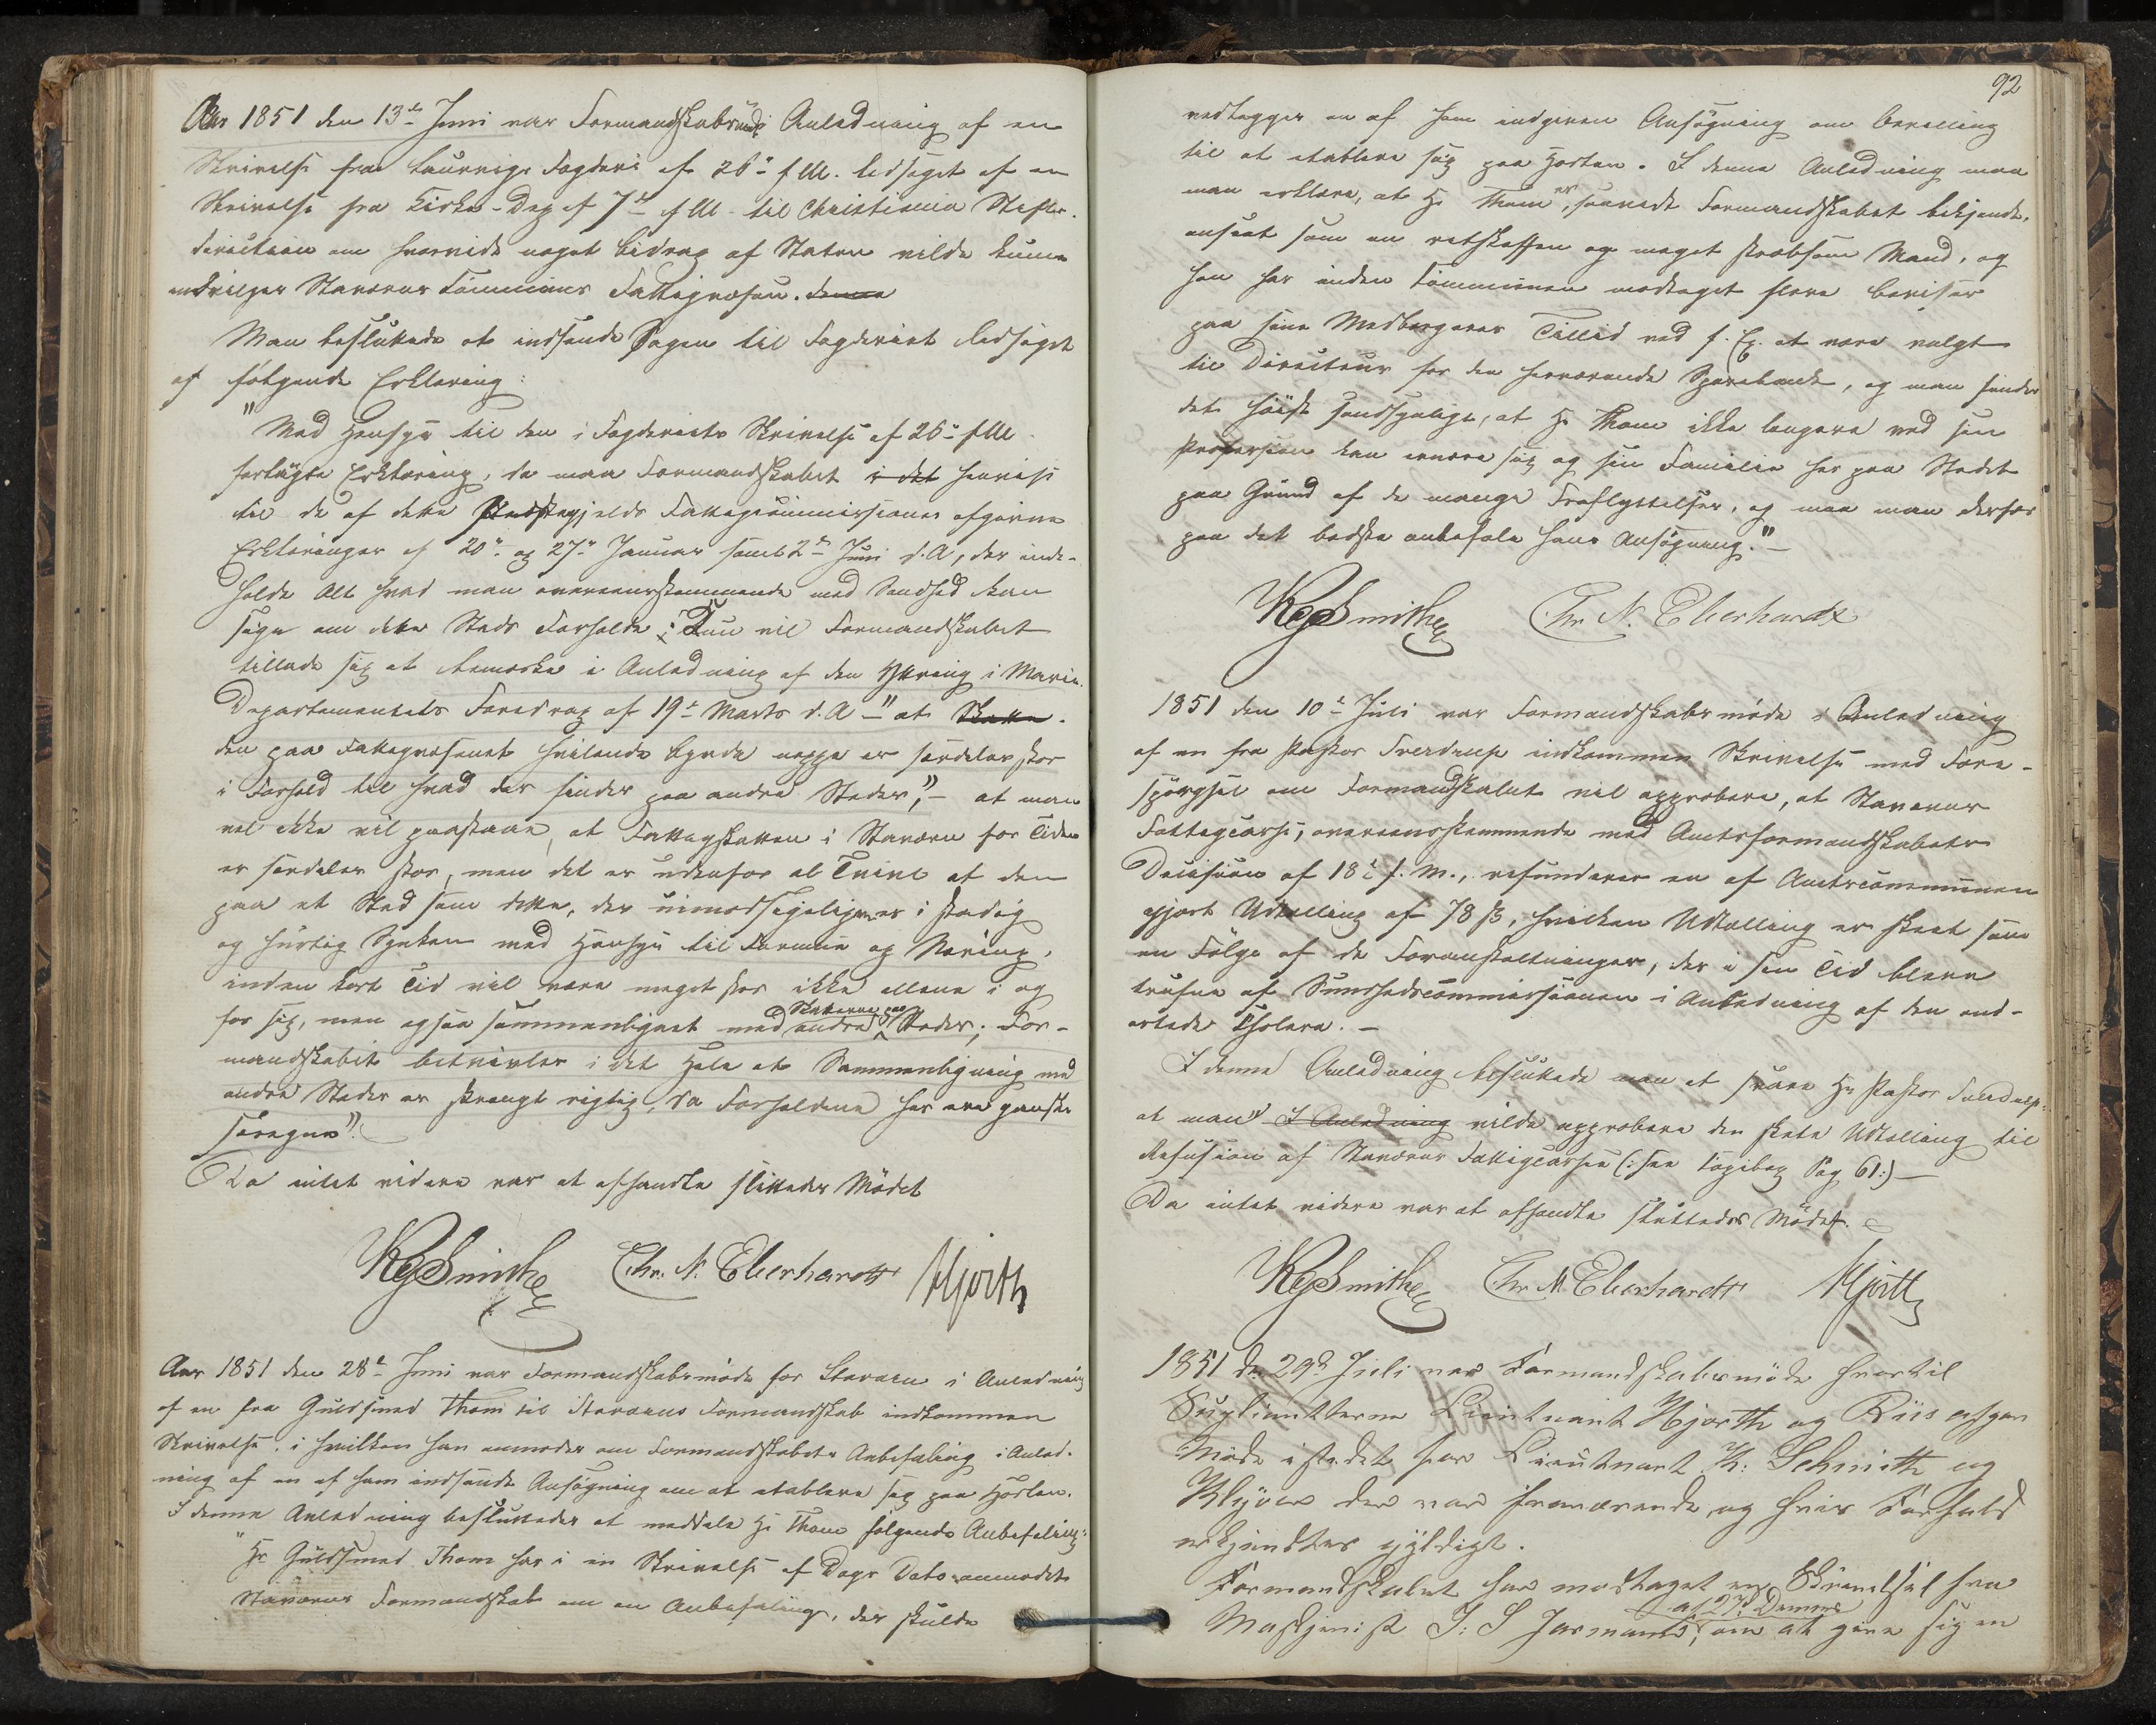 Aar 1851 den 13de Juni var Formandskabsmøde i Anledning af en
Skrivelse fra Laurvigs Fogderi af 26de f. M. ledsaget af en
Skrivelse fra Kirke-Dep. af 7de f. M. til Christiania Stifts-
direction om hvorvidt noget Bidrag af Staten vilde kunne
indvilges Staværns Communes Fattigvæsen.
Man besluttede at indsende Sagen til Fogderiet ledsaget
af følgende Erklæring:
"Med Hensyn til den i Fogderiets Skrivelse af 26de f. M.
forlangte Erklæring, da maa Formandskabet henvise
til de af dette Præstegjelds Fattigcommissioner afgivne
Erklæringer af 20de og 27de Januar samt 2den Juni d. A., der inde-
holde Alt hvad man overeensstemmende med Sandhed kan
sige om dette Steds Forholde; Kun vil Formandskabet
tillade sig at bemærke i Anledning af den Yttring i Marine-
Departementets Foredrag af 19de Marts d. A. – "at
den paa Fattigvæsenet hvilende Byrde neppe er særdeles stor
i Forhold til hvad der finder paa andre Steder", – at man
vel ikke vil paastaae, at Fattigskatten i Staværn for Tiden
er særdeles stor, men det er udenfor al Tvivl at den
paa et Sted som dette, der uimodsigeligen er i stadig
og hurtig Synken med Hensyn til Formue og Næring,
inden kort Tid vil være meget stor ikke allene i og
for sig, men ogsaa sammenlignet med Skatterne paa andre Steder; For-
mandskabet betvivler i det Hele at Sammenligning med
andre Steder er strengt rigtig, da Forholdene her ere ganske
særegne".
Da intet videre var at afhandle sluttedes Mødet
Chr. N. Eberhardt Hjorth
Aar 1851 den 28de Juni var Formandskabsmøde for Staværn i Anledning
af en fra Guldsmed Thom til Staværns Formandskab indkommen
Skrivelse, i hvilken han anmoder om Formandskabets Anbefaling i Anled-
ning af en af ham indsendt Ansøgning om at etablere sig paa Horten.
I denne Anledning besluttedes at meddele Hr Thom følgende Anbefaling:
"Hr Guldsmed Thom har i en Skrivelse af Dags Dato anmodet
Staværns Formandskab om en Anbefaling, der skulde
92
vedlægges en af ham indgiven Ansøgning om Bevilling
til at etablere sig paa Horten. I denne Anledning maa
man erklære, at Hr Thom er, saavidt Formandskabet bekjendt,
anseet som en retskaffen og meget stræbsom Mand, og
han har inden Communen modtaget flere Beviser
paa sine Medborgeres Tillid ved f. Ex. at være valgt
til Directeur for den herværende Sparebank, og man finder
det høist sandsynligt, at Hr Thom ikke længere ved sin
Profession kan ernære sig og sin Familie her paa Stedet
paa Grund af de mange Fraflyttelser, og maa man derfor
paa det bedste anbefale hans Ansøgning." –
Chr. N. Eberhardt
1851 den 10de Juli var Formandskabsmøde i Anledning
af en fra Pastor Sverdrup indkommen Skrivelse med Fore-
spørgsel om Formandskabet vil approbere, at Staværns
Fattigcasse, overeensstemmende med Amtsformandskabets
Decision af 18de f. M., refunderer en af Amtscommunen
gjort Udtælling af 78 ß, hvilken Udtælling er skeet som
en Følge af de Foranstaltninger, der i sin Tid bleve
trufne af Sundhedscommissionen i Anledning af den ond-
artede Cholera. –
I denne Anledning besluttede man at svare Hr Pastor Sverdrup:
at man I Anledning vilde approbere den skete Udtælling til
Refusion af Staværns Fattigcasse (: see Copibog Pag 61:) –
Da intet videre var at afhandle sluttedes Mødet.
Chr N Eberhardt Hjorth
1851 d. 29d Juli var Formandskabsmøde hvortil
Suplianterne Lieutnant Hjorth og Riis afgav
Møde istedet for Lieutnant K: Schmith og
der var fraværende og hvis Forfald
erkjendtes gyldigt.
Formandskabet har modtaget en Skrivelse fra
Maskinist J: S af 27d Dennes, om at give sig en